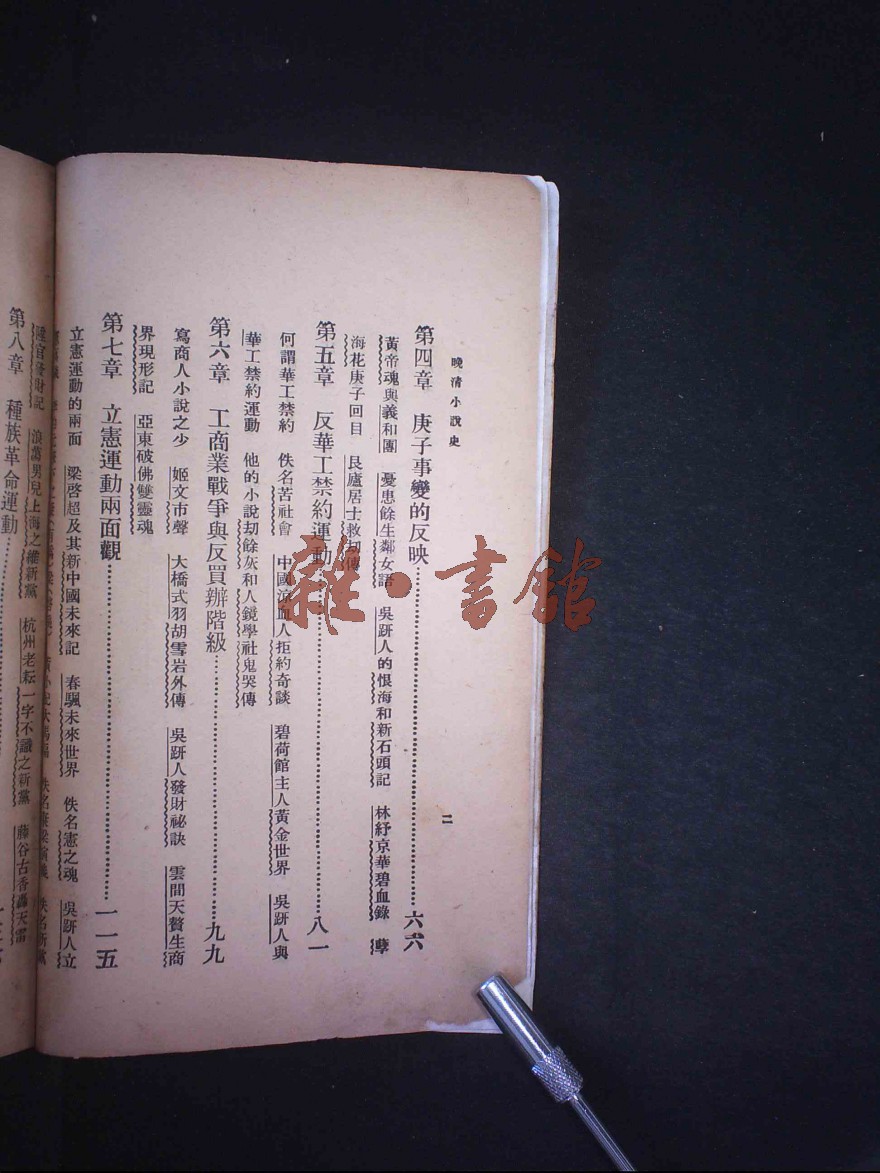 晚清小說史
二
第四章 庚子事變的反映……六六
黃帝魂與義和團 憂患餘生鄰女語 吳趼人的恨海和新石頭記 林紓京華碧血錄 孽
海花庚子回目 艮廬居士救劫傳
第五章 反華工禁約運動……八一
何謂華工禁約 佚名苦社會 中國涼血人拒約奇談 碧荷館主人黃金世界 吳趼人與
華工禁約運動 他的小說劫餘灰和人鏡學社鬼哭傳
第六章 工商業戰爭與反買辦階級……九九
寫商人小說之少 姬文市聲 大橋式羽胡雪岩外傳 吳趼人發財祕訣 雲間天贅生商
界現形記 亞東破佛雙靈魂
第七章 立憲運動兩面觀……一一五
立憲運動的兩面 梁啓超及其新中國未來記 春颿未來世界 佚名憲之魂 吳趼人立
佚名新黨
陞官發財記 浪蕩男兒上海之維新黨 杭州老耘一字不識之新黨 藤谷古香轟天雷
第八章 種族革命運動……
雜·書館